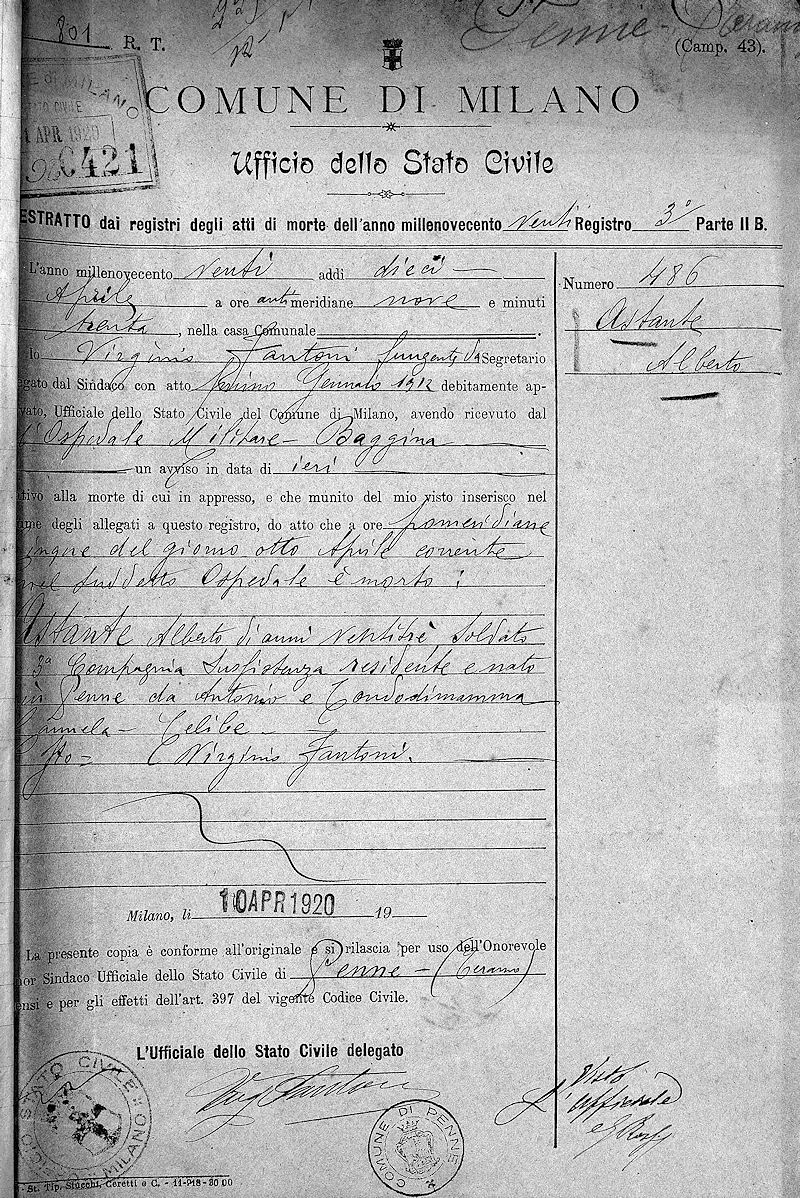 801 R. T.
Penne - Teramo
(Camp. 43).
COMUNE DI MILANO
Ufficio dello Stato Civile
E DI MILANO
STATO CIVILE
1 APR 1920
0421
ESTRATTO dai registri degli atti di morte dell'anno millenovecento venti Registro 3º Parte II B.
L'anno millenovecento venti addì dieci
Aprile a ore antimeridiane nove e minuti
trenta, nella casa Comunale
Io Virginio Fantoni fungente di Segretario
egato dal Sindaco con atto primo Gennaio 1912 debitamente ap-
vato, Ufficiale dello Stato Civile del Comune di Milano, avendo ricevuto dal
Ospedale Militare - Baggina
un avviso in data di ieri
tivo alla morte di cui in appresso, e che munito del mio visto inserisco nel
me degli allegati a questo registro, do atto che a ore pomeridiane
inque del giorno otto Aprile corrente
nel suddetto Ospedale è morto:
Astante Alberto di anni ventitrè soldato
3ª Compagnia Sussistenza residente e nato
in Penne da Antonio e Condodimamma
Celibe -
Virginio Fantoni.
Numero 486
Astante
Alberto
Milano, li 10 APR 1920 19
La presente copia è conforme all'originale e si rilascia per uso dell'Onorevole
nor Sindaco Ufficiale dello Stato Civile di Penne - (Teramo)
ensi e per gli effetti dell'art. 397 del vigente Codice Civile.
L'Ufficiale dello Stato Civile delegato
Virg Fantoni
Visto
L'Ufficiale
STATO CIVILE
MILANO
COMUNE DI PENNE
St. Tip. Stucchi, Ceretti e C. - 11-918-3000